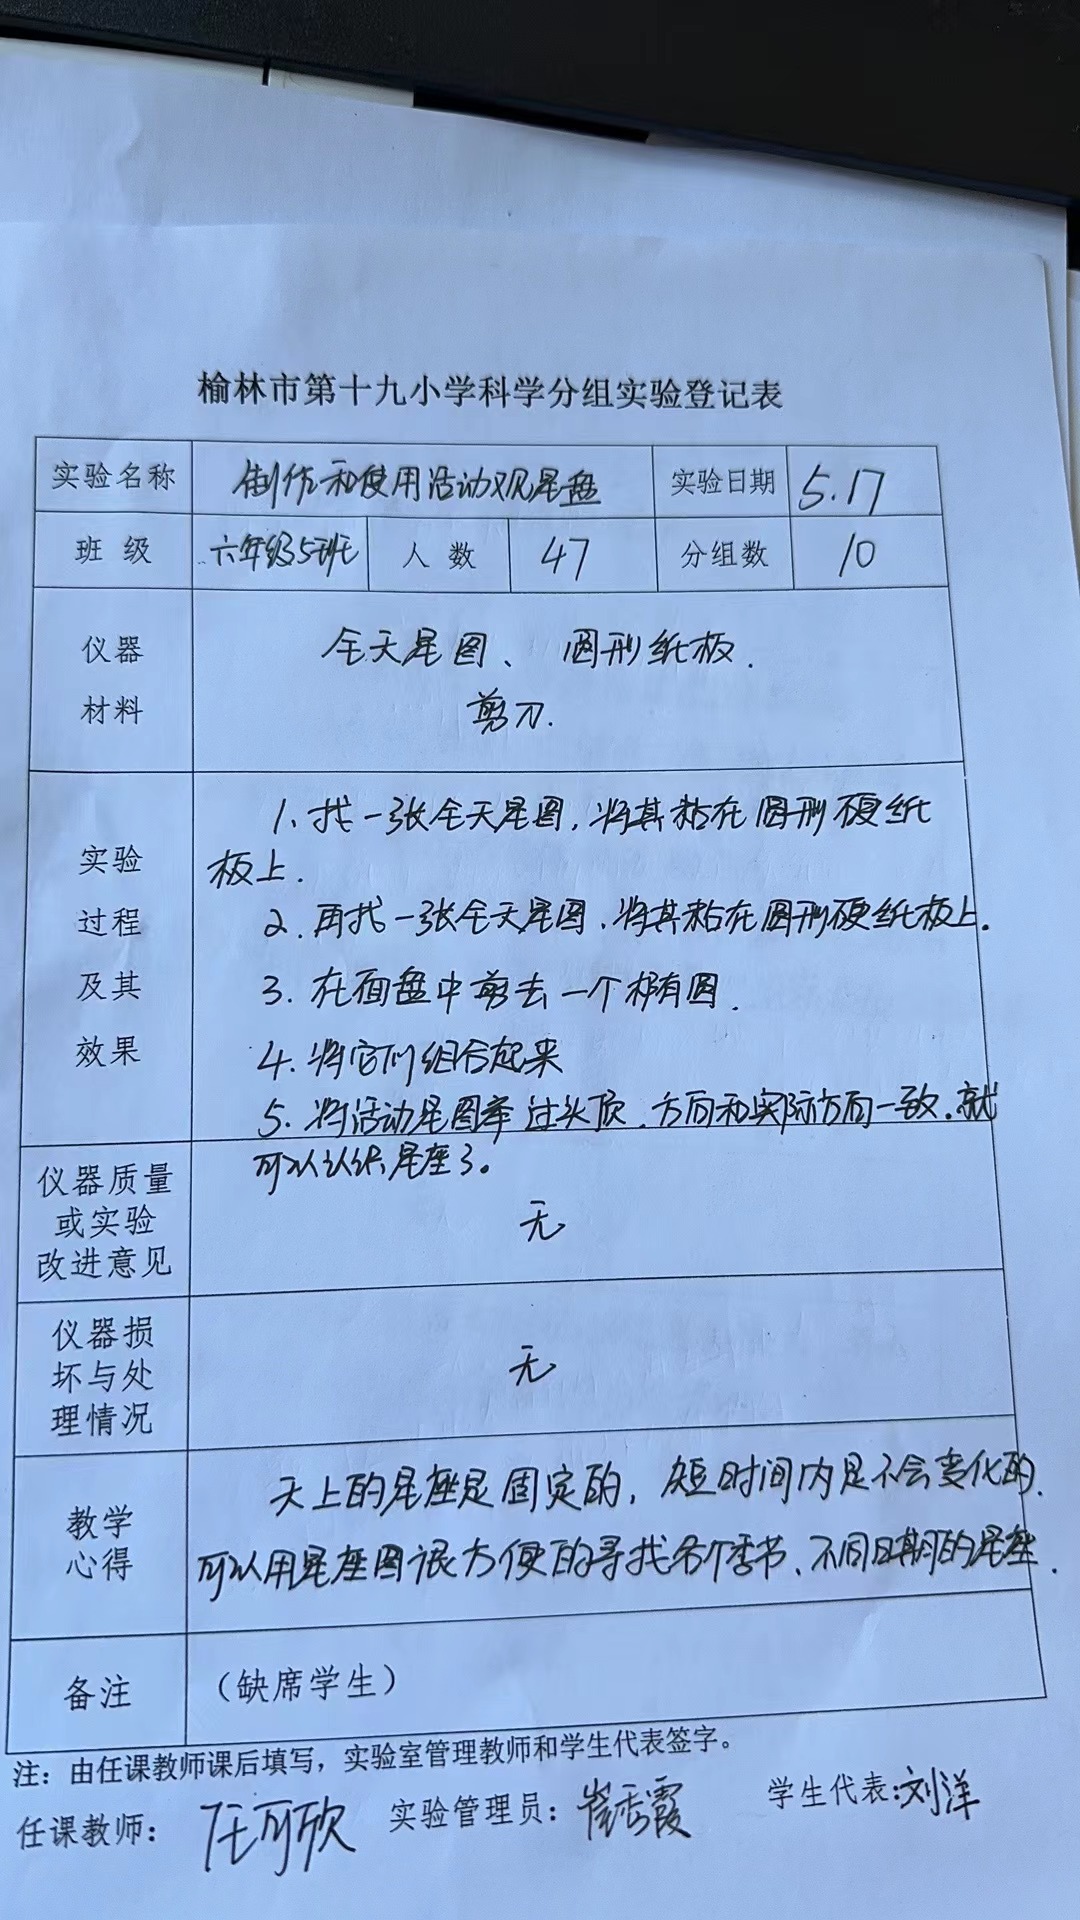 榆林市第十九小学科学分组实验登记表
实验名称 制作和使用活动观星盘 实验日期 5.17
班级 六年级5班 人数 47 分组数 10
仪器
材料
全天星图、 圆形纸板.
剪刀.
实验
过程
及其
效果
1、找一张全天星图,将其粘在圆形硬纸
板上.
2、再找一张全天星图,将其粘在圆形硬纸板上。
3. 在面盘中剪去一个椭圆.
4. 将它们组合起来
5. 将活动星图举过头顶、方向和实际方向一致,就
可以认识星座了。
仪器质量
或实验
改进意见
无
仪器损
坏与处
理情况
无
教学
心得
天上的星座是固定的,短时间内是不会变化的.
可以用星座图很方便的寻找各个季节、不同日期的星座.
备注 (缺席学生)
注:由任课教师课后填写,实验室管理教师和学生代表签字。
任课教师: 任可欣 实验管理员: 崔秀霞 学生代表:刘洋